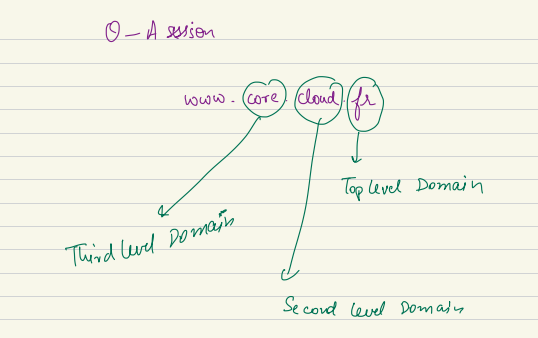 Q-A session
www.core.cloud.fr
Top level Domain
Third level Domain
Second level Domain